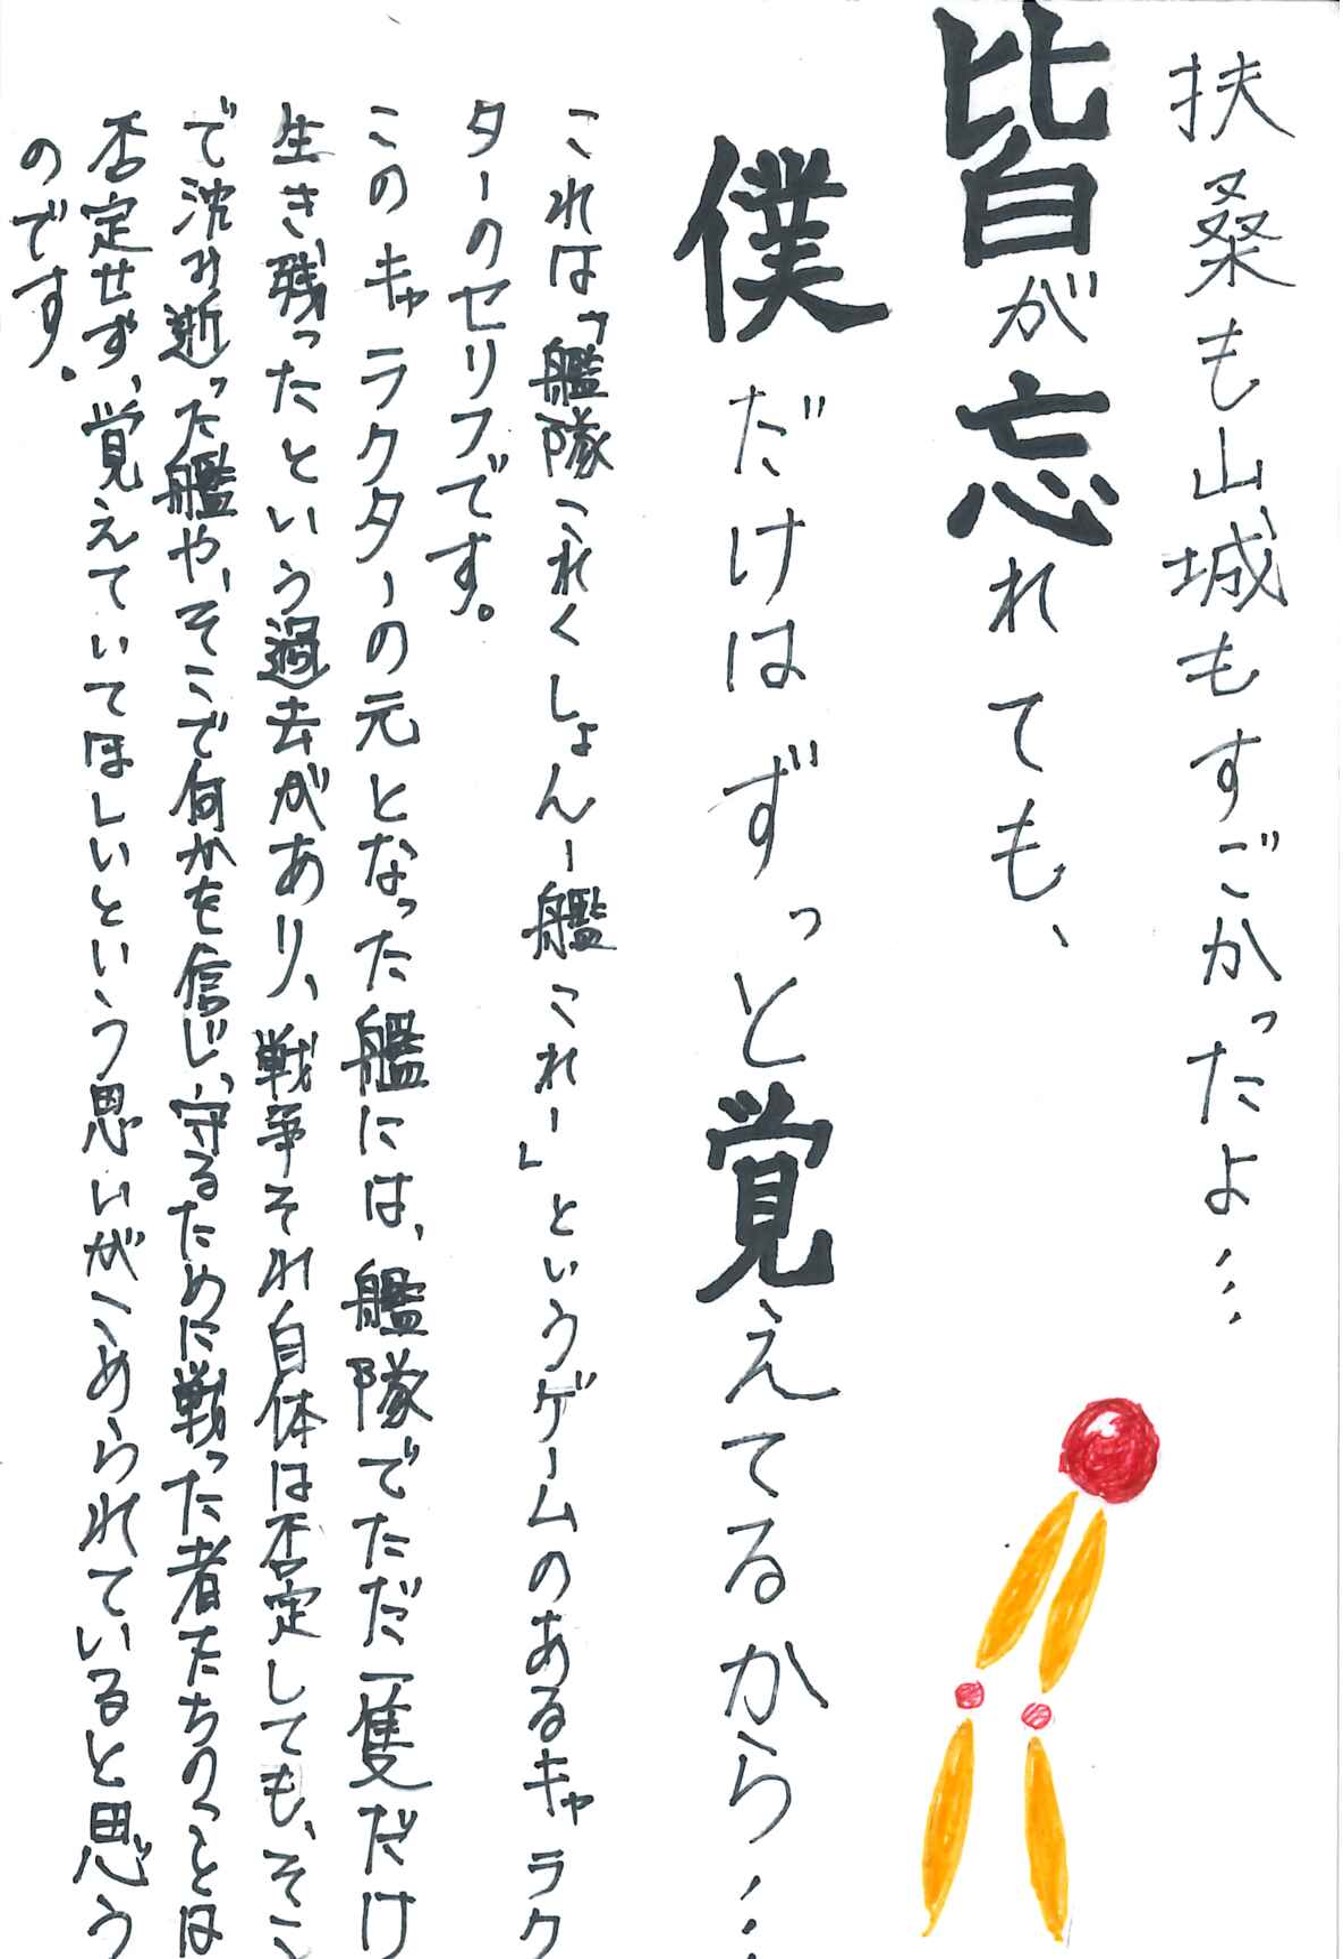 扶桑も山城もすごかったよ…
皆が忘れても、
僕だけはずっと覚えてるから…
これは「艦隊これくしょんー艦これー」というゲームのあるキャラク
ターのセリフです。
このキャラクターの元となった艦には、艦隊でただ一隻だけ
生き残ったという過去があり、戦争それ自体は否定しても、そこ
で沈み逝った艦や、そこで何かを信じ、守るために戦った者たちのことは
否定せず、覚えていてほしいという思いがこめられていると思う
のです。